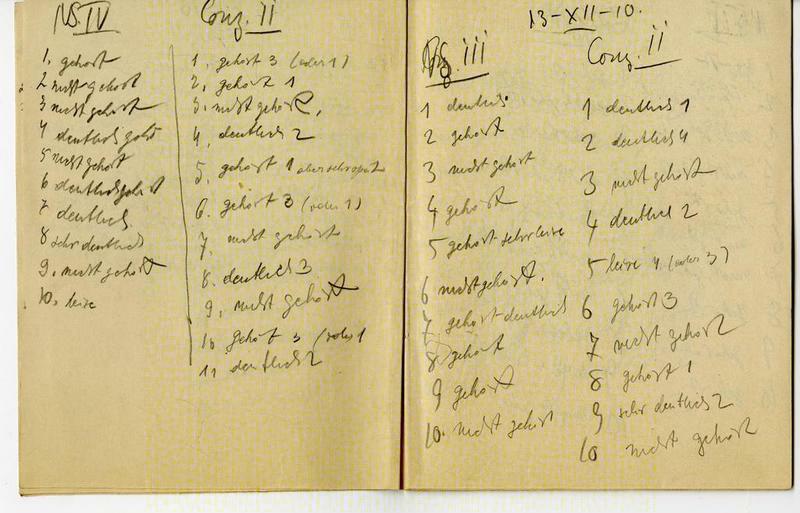 NS. IV
1. gehört
2 nicht gehört
3 nicht gehört
4 deutlich gehört
5 nicht gehört
6 deutlich gehört
7 deutlich
8 sehr deutlich
9. nicht gehört
10. leise
Conz. II
1. gehört 3 (oder 1)
2. gehört 1
3. nicht gehört.
4. deutlich 2
5. gehört 1 aber sehr spät
6. gehört 3 (oder 1)
7. nicht gehört
8. deutlich 3
9. nicht gehört
10 gehört 3 (oder 1
11 deutlich 2
13-XII-10.
iii
1 deutlich.
2 gehört
3 nicht gehört
4 gehört
5 gehört sehr leise
6 nicht gehört.
7 gehört deutlich
8 gehört
9 gehört
10. nicht gehört
Conz. ii
1 deutlich 1
2 deutlich 4
3 nicht gehört
4 deutlich 2
5 leise 4 (oder 3)
6 gehört 3
7 nicht gehört
8 gehört 1
9 sehr deutlich 2
10 nicht gehört